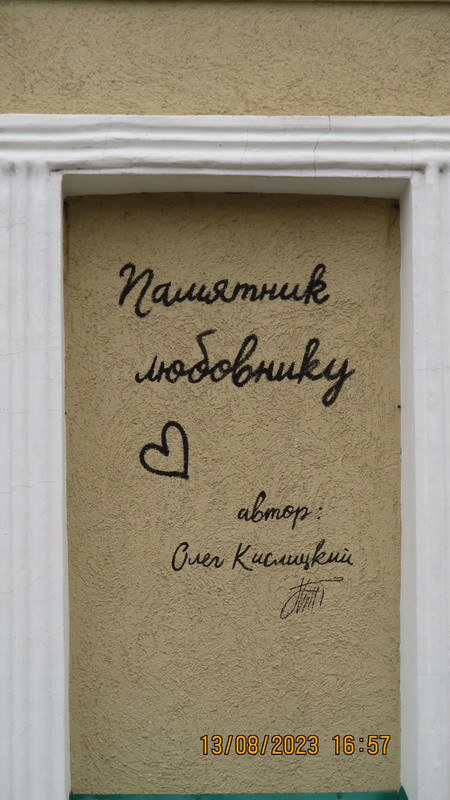 Памятник
любовнику
автор:
Олег Кислицкий
13/08/2023 16:57